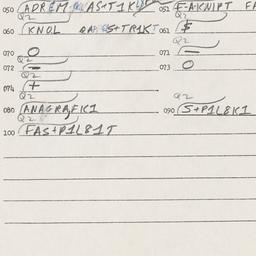 050 ADREM AS+T1K 052 F-AKNIPT FA
Q2 Q2
060 KNOL QAP S+TR1KT 061 $
Q2
070 O 071 —
Q2
072 — 073 O
Q2
074 +
Q2 Q2
080 ANAGRAFK1 090 S+P1L8K1
Q2
100 FAS+P1L81T